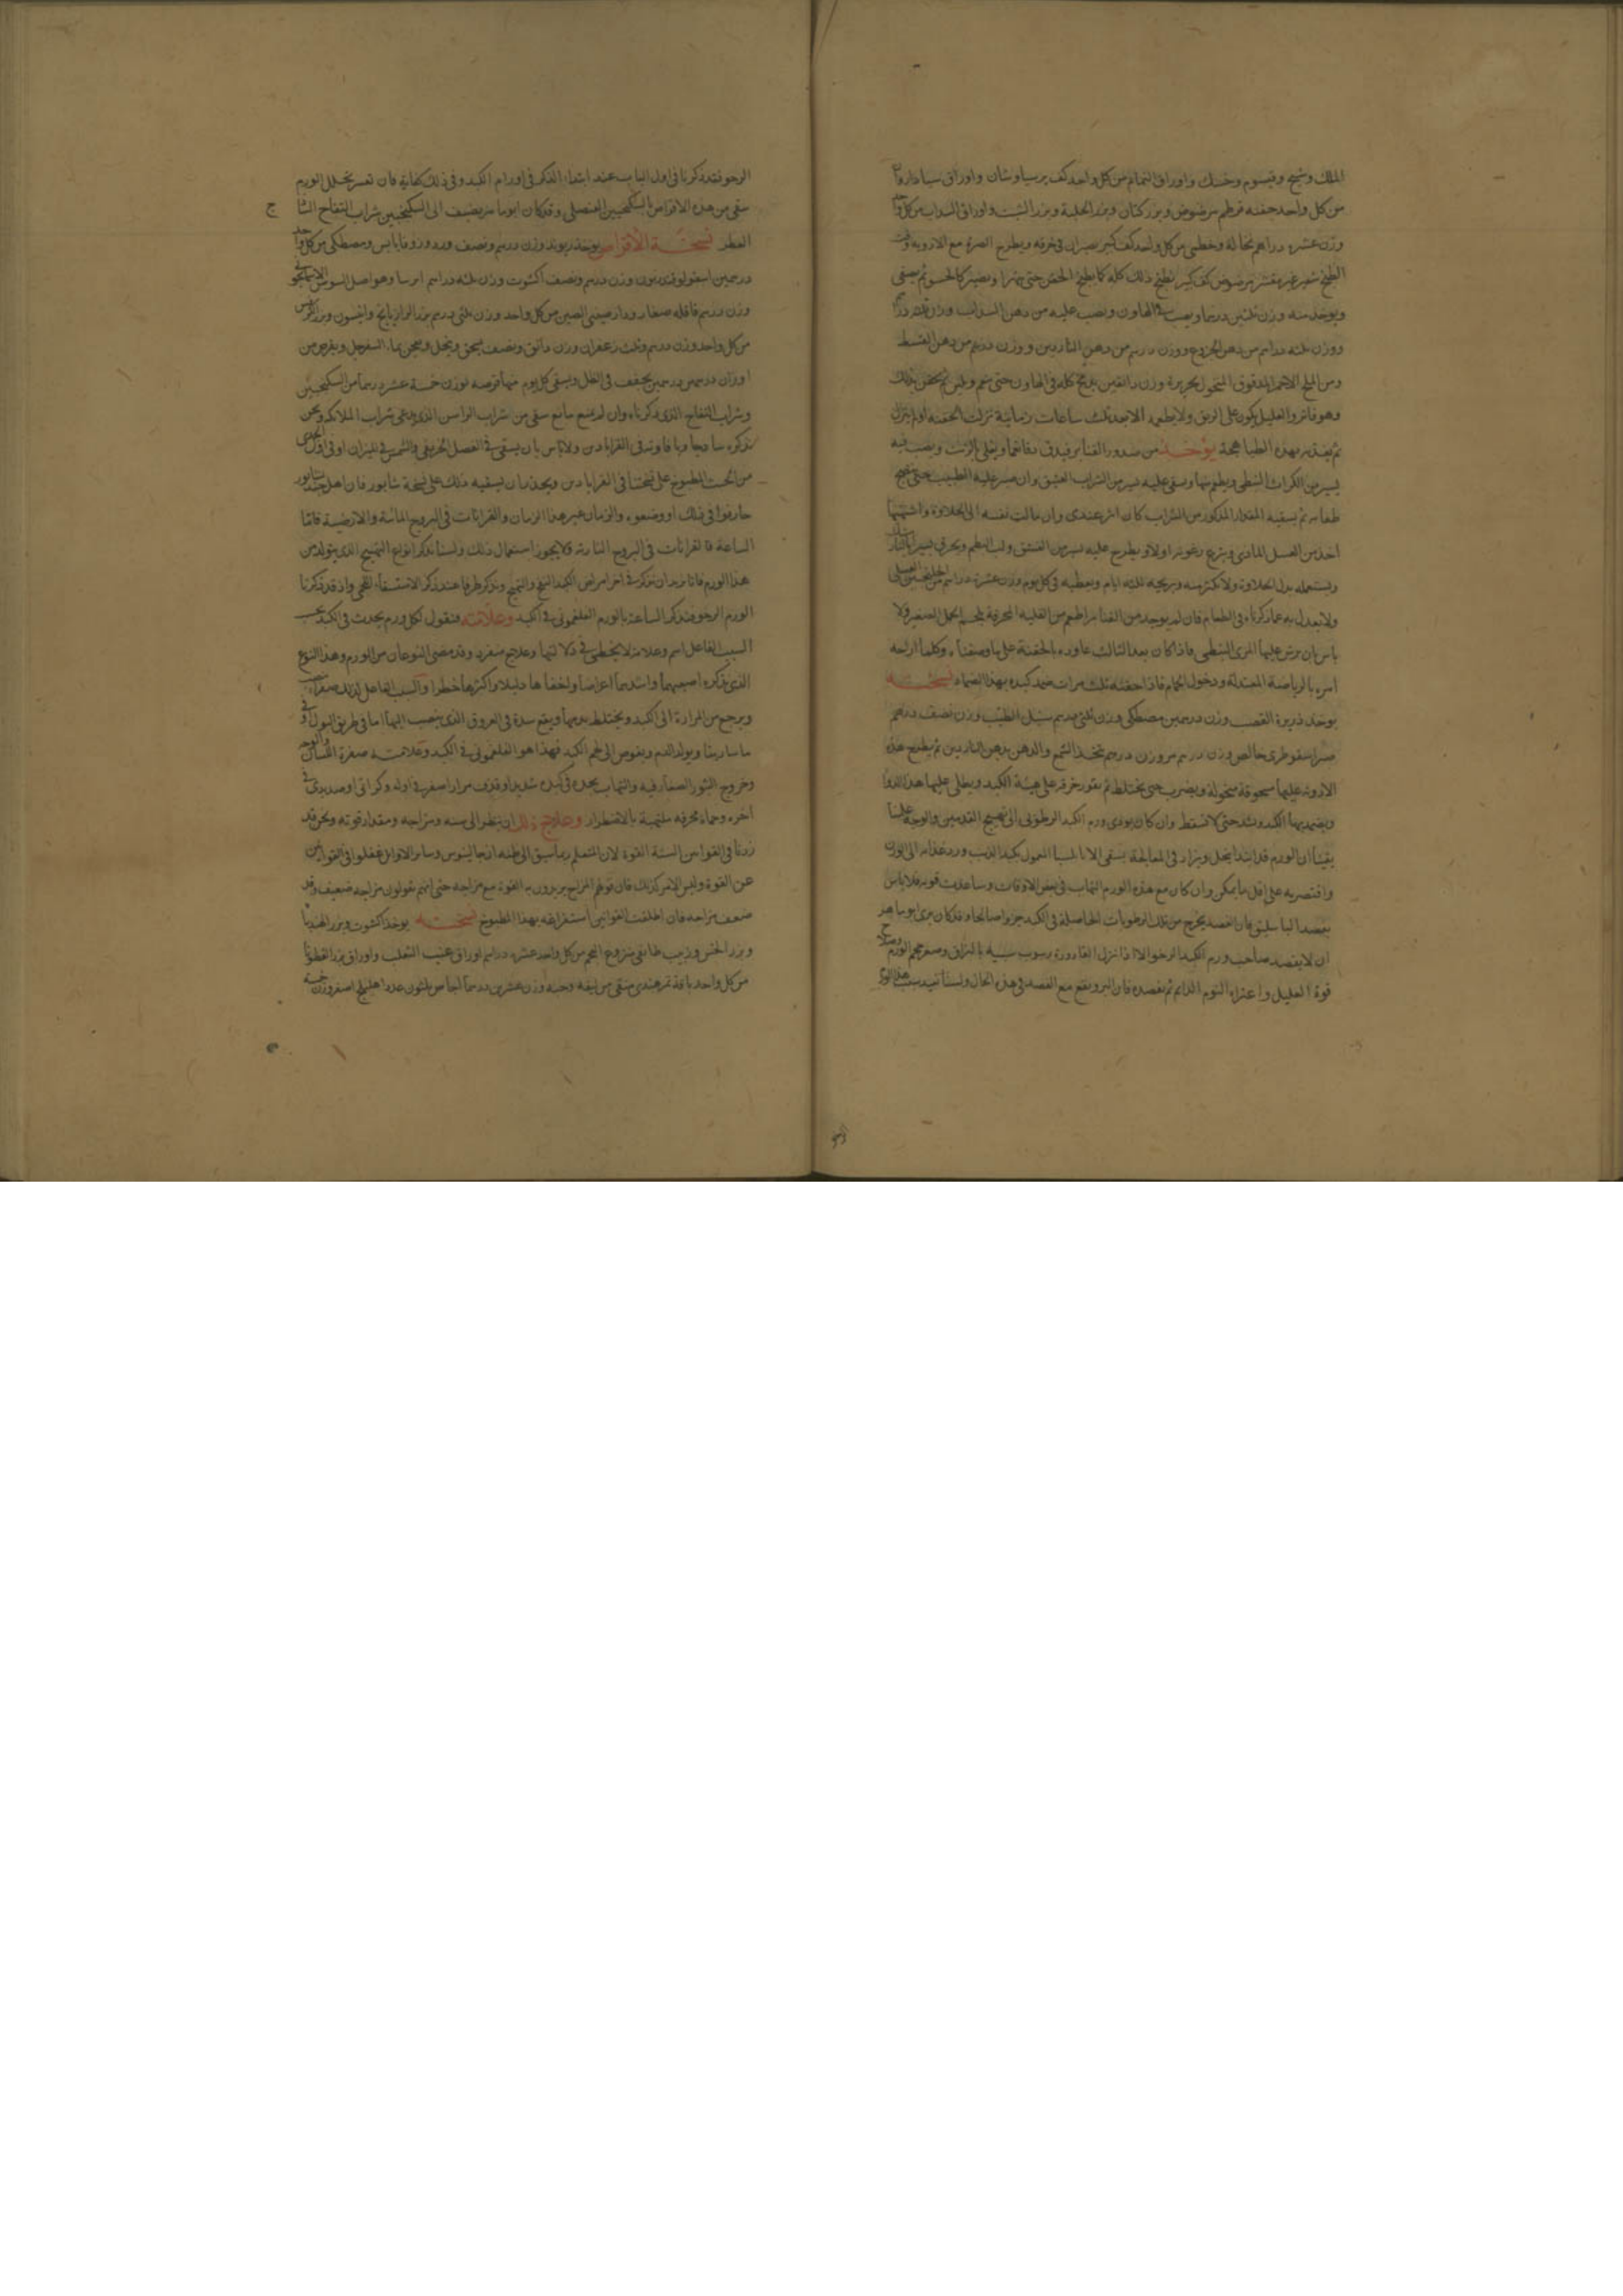 الملك وشيح وقيسوم وحسك واوراق النمام من كل واحد كف برسياوشان واوراق
من كل واحد حفنه قرطم مرضوض وبزر كتان وبزر الحلبة وبزر الشبت واوراق السداب من كل واحد
وزن عشرة دراهم نخالة وخطمى من كل واحد كف كبير يصران فى خرقه ويطرح الصرة مع الادويه وقت
الطبخ شعير غير مقشر مرضوض كف كبير يطبخ ذلك كله كما يطبخ الحقن حتى ويصير كالحسو ثم يصفى
ويوخذ منه وزن ثلثين درهما ويصب فى الهاون ويصب عليه من دهن السداب وزن ثلثه
ووزن ثلثه دراهم من دهن الخروع ووزن درهم من دهن الناردين ووزن درهم من دهن القسط
ومن الملح الاحمر المدقوق المنخول بحريرة وزن دانقين كله فى الهاون حتى ثم يحقن بذلك
وهو فاتر والعليل يكون على الريق ولا يطعمه الا بعد ثلث ساعات زمانية نزلت الحقنه او لم ينزل
ثم بهذه الطباهجة يوخذ من صدور القنابر فيدق دقا ناعما ويقلى بالزيت ويصب فيه
يسير من الكراث النبطى ويطعم منها ويسقى عليه يسير من الشراب العتيق وان صبر عليه الطبيب حتى
طعامه ثم يسقيه المقدار المذكور من الشراب كان اثر عندى وان مالت نفسه الى الحلاوة واشتهيها
اخذ من العسل الماذى وينزع رغوته اولا ويطرح عليه يسير من الفستق ولب البطم ويحرق يسيرا بالنار
ويستعمله بدل الحلاوة ولا يكثر منه ويريحه ثلثه ايام ويعطيه فى كل يوم وزن عشرة دراهم من الجلنجبين العسلى
ولا يعدل به عما ذكرناه فى الطعام فان لم يوجد من القنابر اطعم من القليه المحرقة بلحم الحمل الصغير ولا
باس بان يرش عليها المرى النبطى فاذا كان بعد الثالث عاوده بالحقنة على ما وصفناه وكلما اراحه
امره بالرياضة المعتدلة ودخول الحمام فاذا حقنه ثلث مرات ضمد كبده بهذا الضماد نسخته
يوخذ ذريرة القصب وزن درهمين مصطكى وزن ثلثى درهم سنبل الطيب وزن نصف درهم
صبر اسقوطرى خالص وزن درهم مر وزن درهم يتخذ الشمع والدهن بدهن الناردين ثم يطرح هذه
الادويه عليها مسحوقة منخولة ويضرب حتى يختلط ثم يقور خرقه على هيئة الكبد ويطلى عليها هذا الدوا
ويضمد بها الكبد ويشد حتى لا تسقط وان كان يودى ورم الكبد الرطوبى الى تهيج القدمين والوجه علمنا
يقينا ان الورم قد ابتدا ينحل ويزاد فى المعالجة بسقى الاثاناسيا المعمول بكبد الذيب ورد غذاه الى
واقتصر به على اقل ما يمكن وان كان مع هذه الورم التهاب فى بعض الاوقات وساعدت قوته فلا باس
بفصد الباسليق فان الفصد يخرج من تلك الرطوبات الحاصلة فى الكبد جزوا صالحا وقد كان يرى ابو ماهر
ان لا يفصد صاحب ورم الكبد الرخو الا اذا نزل القارورة رسوب شبيه بالبزاق وصغر حجم الورم
قوة العليل واعتراه النوم الدايم ثم يفصده فان البرو يقع مع الفصد فى هذه الحال ولسنا نعيد سبب هذا الورم
الرخو فقد ذكرنا فى اول الباب عند ابتداء الذكر فى اورام الكبد وفى ذلك كفاية فان تعسر تحلل الورم
سقى من هذه الاقراص بالسكنجبين العنصلى وقد كان ابو ماهر يضيف الى السكنجبين شراب التفاح
العطر نسخة الاقراص يوخذ ريوند وزن درهم ونصف ورد وزوفا يابس ومصطكى من كل واحد
درهمين اسقولوقندريون وزن درهم ونصف اكشوث وزن ثلثه دراهم ايرسا وهو اصل السوسن الاسمانجونى
وزن درهم قاقله صغار ودارصينى الصين من كل واحد وزن ثلثى درهم بزر الرازيانج وانيسون وبزر الكرفس
من كل واحد وزن درهم وثلث زعفران وزن دانق ونصف يسحق وينخل ويعجن بماء السفرجل ويقرص من
اوزان درهمين درهمين يجفف فى الظل ويسقى كل يوم منها قرصه بوزن خمسة عشر درهما من السكنجبين
وشراب التفاح الذى ذكرناه وان لم يمنع مانع سقى من شراب الراسن الذى يدعى شراب الملائكه ونحن
نذكره ساذجا وبافاويه فى القراباذين ولا باس بان يسقى فى الفصل الخريفى والشمس فى الميزان او فى اول
من المطبوخ على نسختنا فى القراباذين ويحذر ان يسقيه ذلك على نسخة شابور فان اهل جندشابور
جازفوا فى ذلك او وضعوه والزمان غير هذا الزمان والقرانات فى البروج المائية والارضية فاما
الساعة فالقرانات فى البروج النارية فلا يجوز استعمال ذلك ولسنا نذكر انواع التهيج الذى يتولد من
هذا الورم فانا نريد ان نذكره فى اخر امراض الكبد النفخ والتهيج ونذكر طرفا عند ذكر الاستسقاء اللحمى واذ قد ذكرنا
الورم الرخو فنذكر الساعة بالورم الفلغمونى فى الكبد وعلامته فنقول لكل ورم يحدث فى الكبد
السبب الفاعل اسم وعلامة لا يخطى فى دلالتها وعلاج مفرد وقد مضى النوعان من الورم وهذا النوع
الذى نذكره اصعبهما واشدهما اعراضا واخفاها دليلا واكثرها خطرا والسبب الفاعل لذلك صفراء
ويرجع من المرارة الى الكبد ويختلط بدمها ويقع سدة فى العروق الذى ينصب اليها اما فى طريق البول او
ماساريقا ويولد الدم ويغوص الى لحم الكبد فهذا هو الفلغمونى فى الكبد وعلامته صفرة اللسان والوجه
وخروج البثور الصغار فيه والتهاب يجده فى كبده شديد او قذف مرار اصفر فى اوله وكراثى او صديدى فى
اخره وحماه محرقه ملتهبة بالاضطرار وعلاج ذلك ان ينظر الى سنه ومزاجه ومقدار قوته ونحن قد
زدنا فى القوانين الستة القوة لان المتعلم ربما سبق الى ظنه ان جالينوس وسائر الاوايل غفلوا فى القوانين
عن القوة وليس الامر كذلك فان قولهم المزاج يريدون به القوة مع مزاجه حتى انهم يقولون مزاجه ضعيف وقد
ضعف مزاجه فان اطلقت القوانين استفراغه بهذا المطبوخ نسخته يوخذ اكشوث وبزر الهندبا
وبزر الخس وزبيب طائفى منزوع العجم من كل واحد عشرة دراهم اوراق عنب الثعلب واوراق بزر القطونا
من كل واحد باقة تمر هندى منقى من ليفه وحبه وزن عشرين درهما اجاص ثلثون عددا هليلج اصفر وزن خمسة